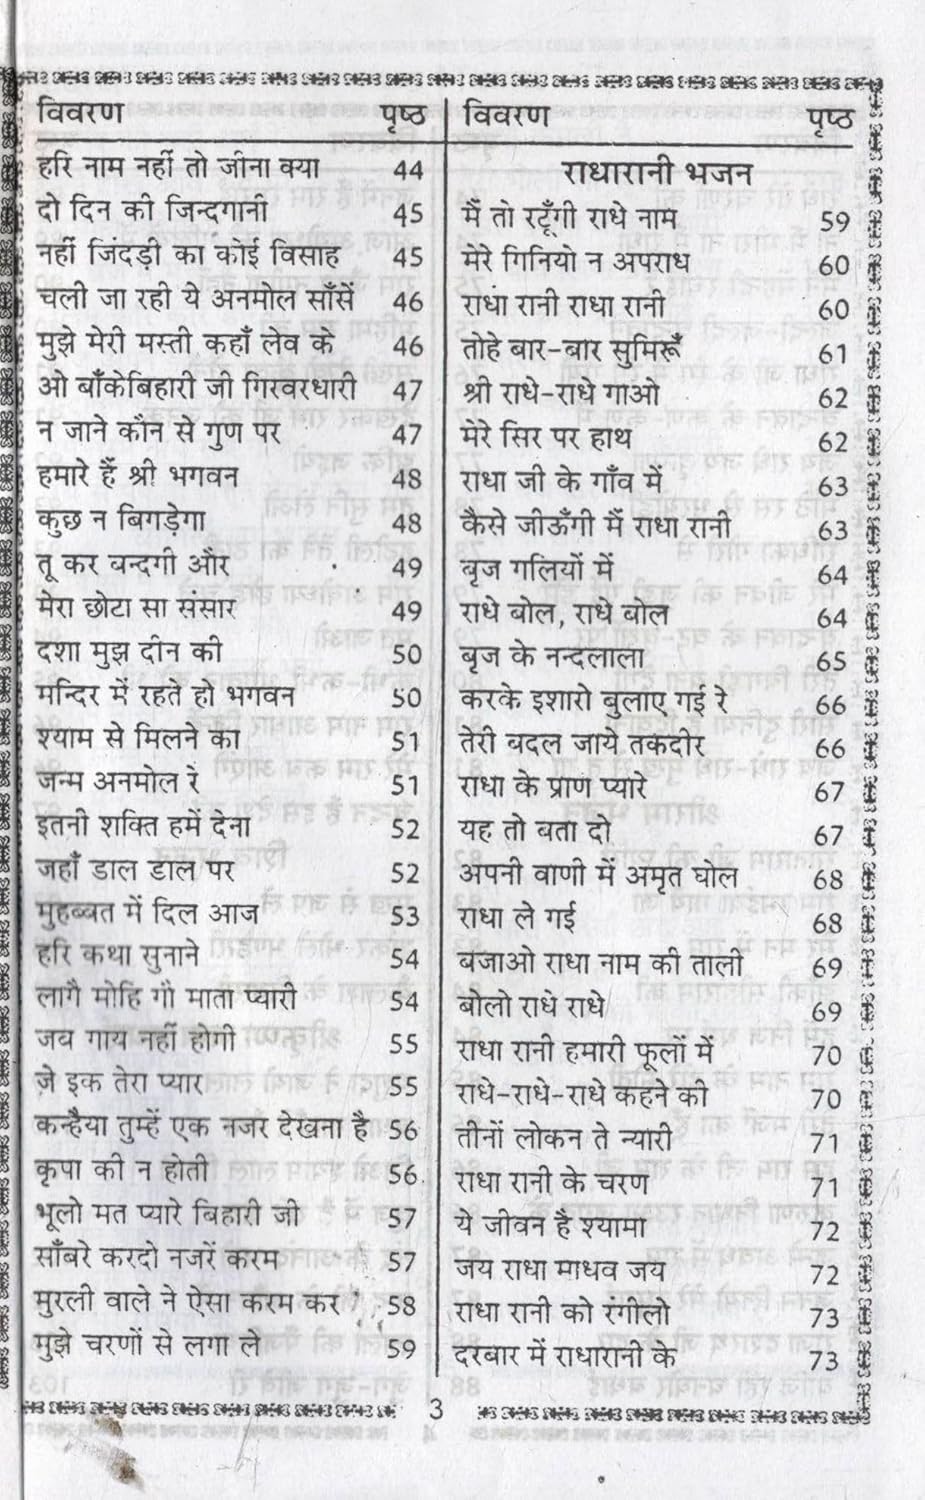 विवरण पृष्ठ
हरि नाम नहीं तो जीना क्या 44
दो दिन की जिन्दगानी 45
नहीं जिंदड़ी का कोई विसाह 45
चली जा रही ये अनमोल साँसें 46
मुझे मेरी मस्ती कहाँ लेव के 46
ओ बाँकेबिहारी जी गिरवरधारी 47
न जाने कौन से गुण पर 47
हमारे हैं श्री भगवन 48
कुछ न बिगड़ेगा 48
तू कर बन्दगी और 49
मेरा छोटा सा संसार 49
दशा मुझ दीन की 50
मन्दिर में रहते हो भगवन 50
श्याम से मिलने का 51
जन्म अनमोल रे 51
इतनी शक्ति हमें देना 52
जहाँ डाल डाल पर 52
मुहब्बत में दिल आज 53
हरि कथा सुनाने 54
लागै मोहि गौ माता प्यारी 54
जब गाय नहीं होगी 55
जे इक तेरा प्यार 55
कन्हैया तुम्हें एक नजर देखना है 56
कृपा की न होती 56
भूलो मत प्यारे बिहारी जी 57
साँबरे करदो नजरें करम 57
मुरली वाले ने ऐसा करम कर 58
मुझे चरणों से लगा ले 59
विवरण पृष्ठ
राधारानी भजन
मैं तो रटूँगी राधे नाम 59
मेरे गिनियो न अपराध 60
राधा रानी राधा रानी 60
तोहे बार-बार सुमिरूँ 61
श्री राधे-राधे गाओ 62
मेरे सिर पर हाथ 62
राधा जी के गाँव में 63
कैसे जीऊँगी मैं राधा रानी 63
बृज गलियों में 64
राधे बोल, राधे बोल 64
बृज के नन्दलाला 65
करके इशारो बुलाए गई रे 66
तेरी बदल जाये तकदीर 66
राधा के प्राण प्यारे 67
यह तो बता दो 67
अपनी वाणी में अमृत घोल 68
राधा ले गई 68
बजाओ राधा नाम की ताली 69
बोलो राधे राधे 69
राधा रानी हमारी फूलों में 70
राधे-राधे-राधे कहने की 70
तीनों लोकन ते न्यारी 71
राधा रानी के चरण 71
ये जीवन है श्यामा 72
जय राधा माधव जय 72
राधा रानी को रंगीलो 73
दरबार में राधारानी के 73
3